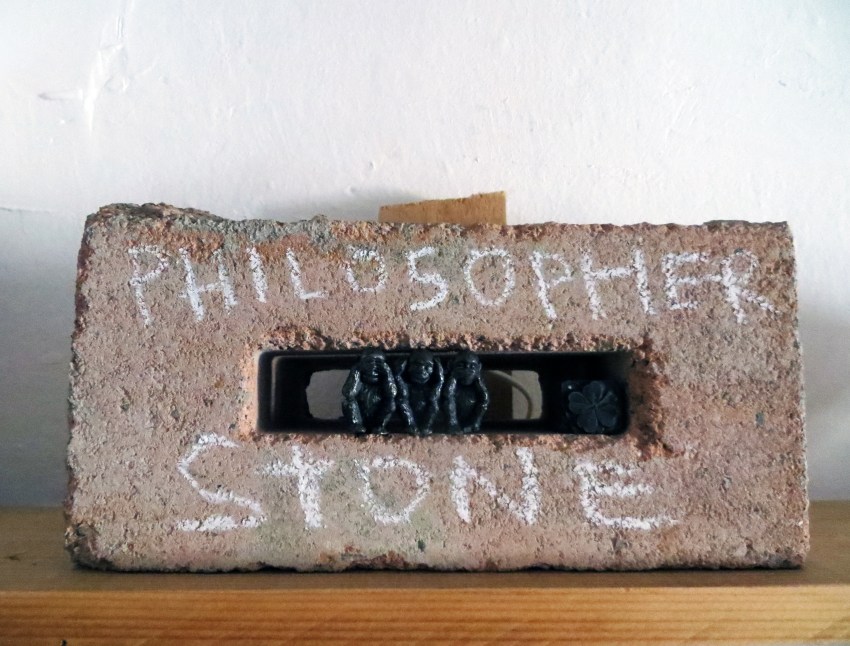 PHILOSOPHER
STONE